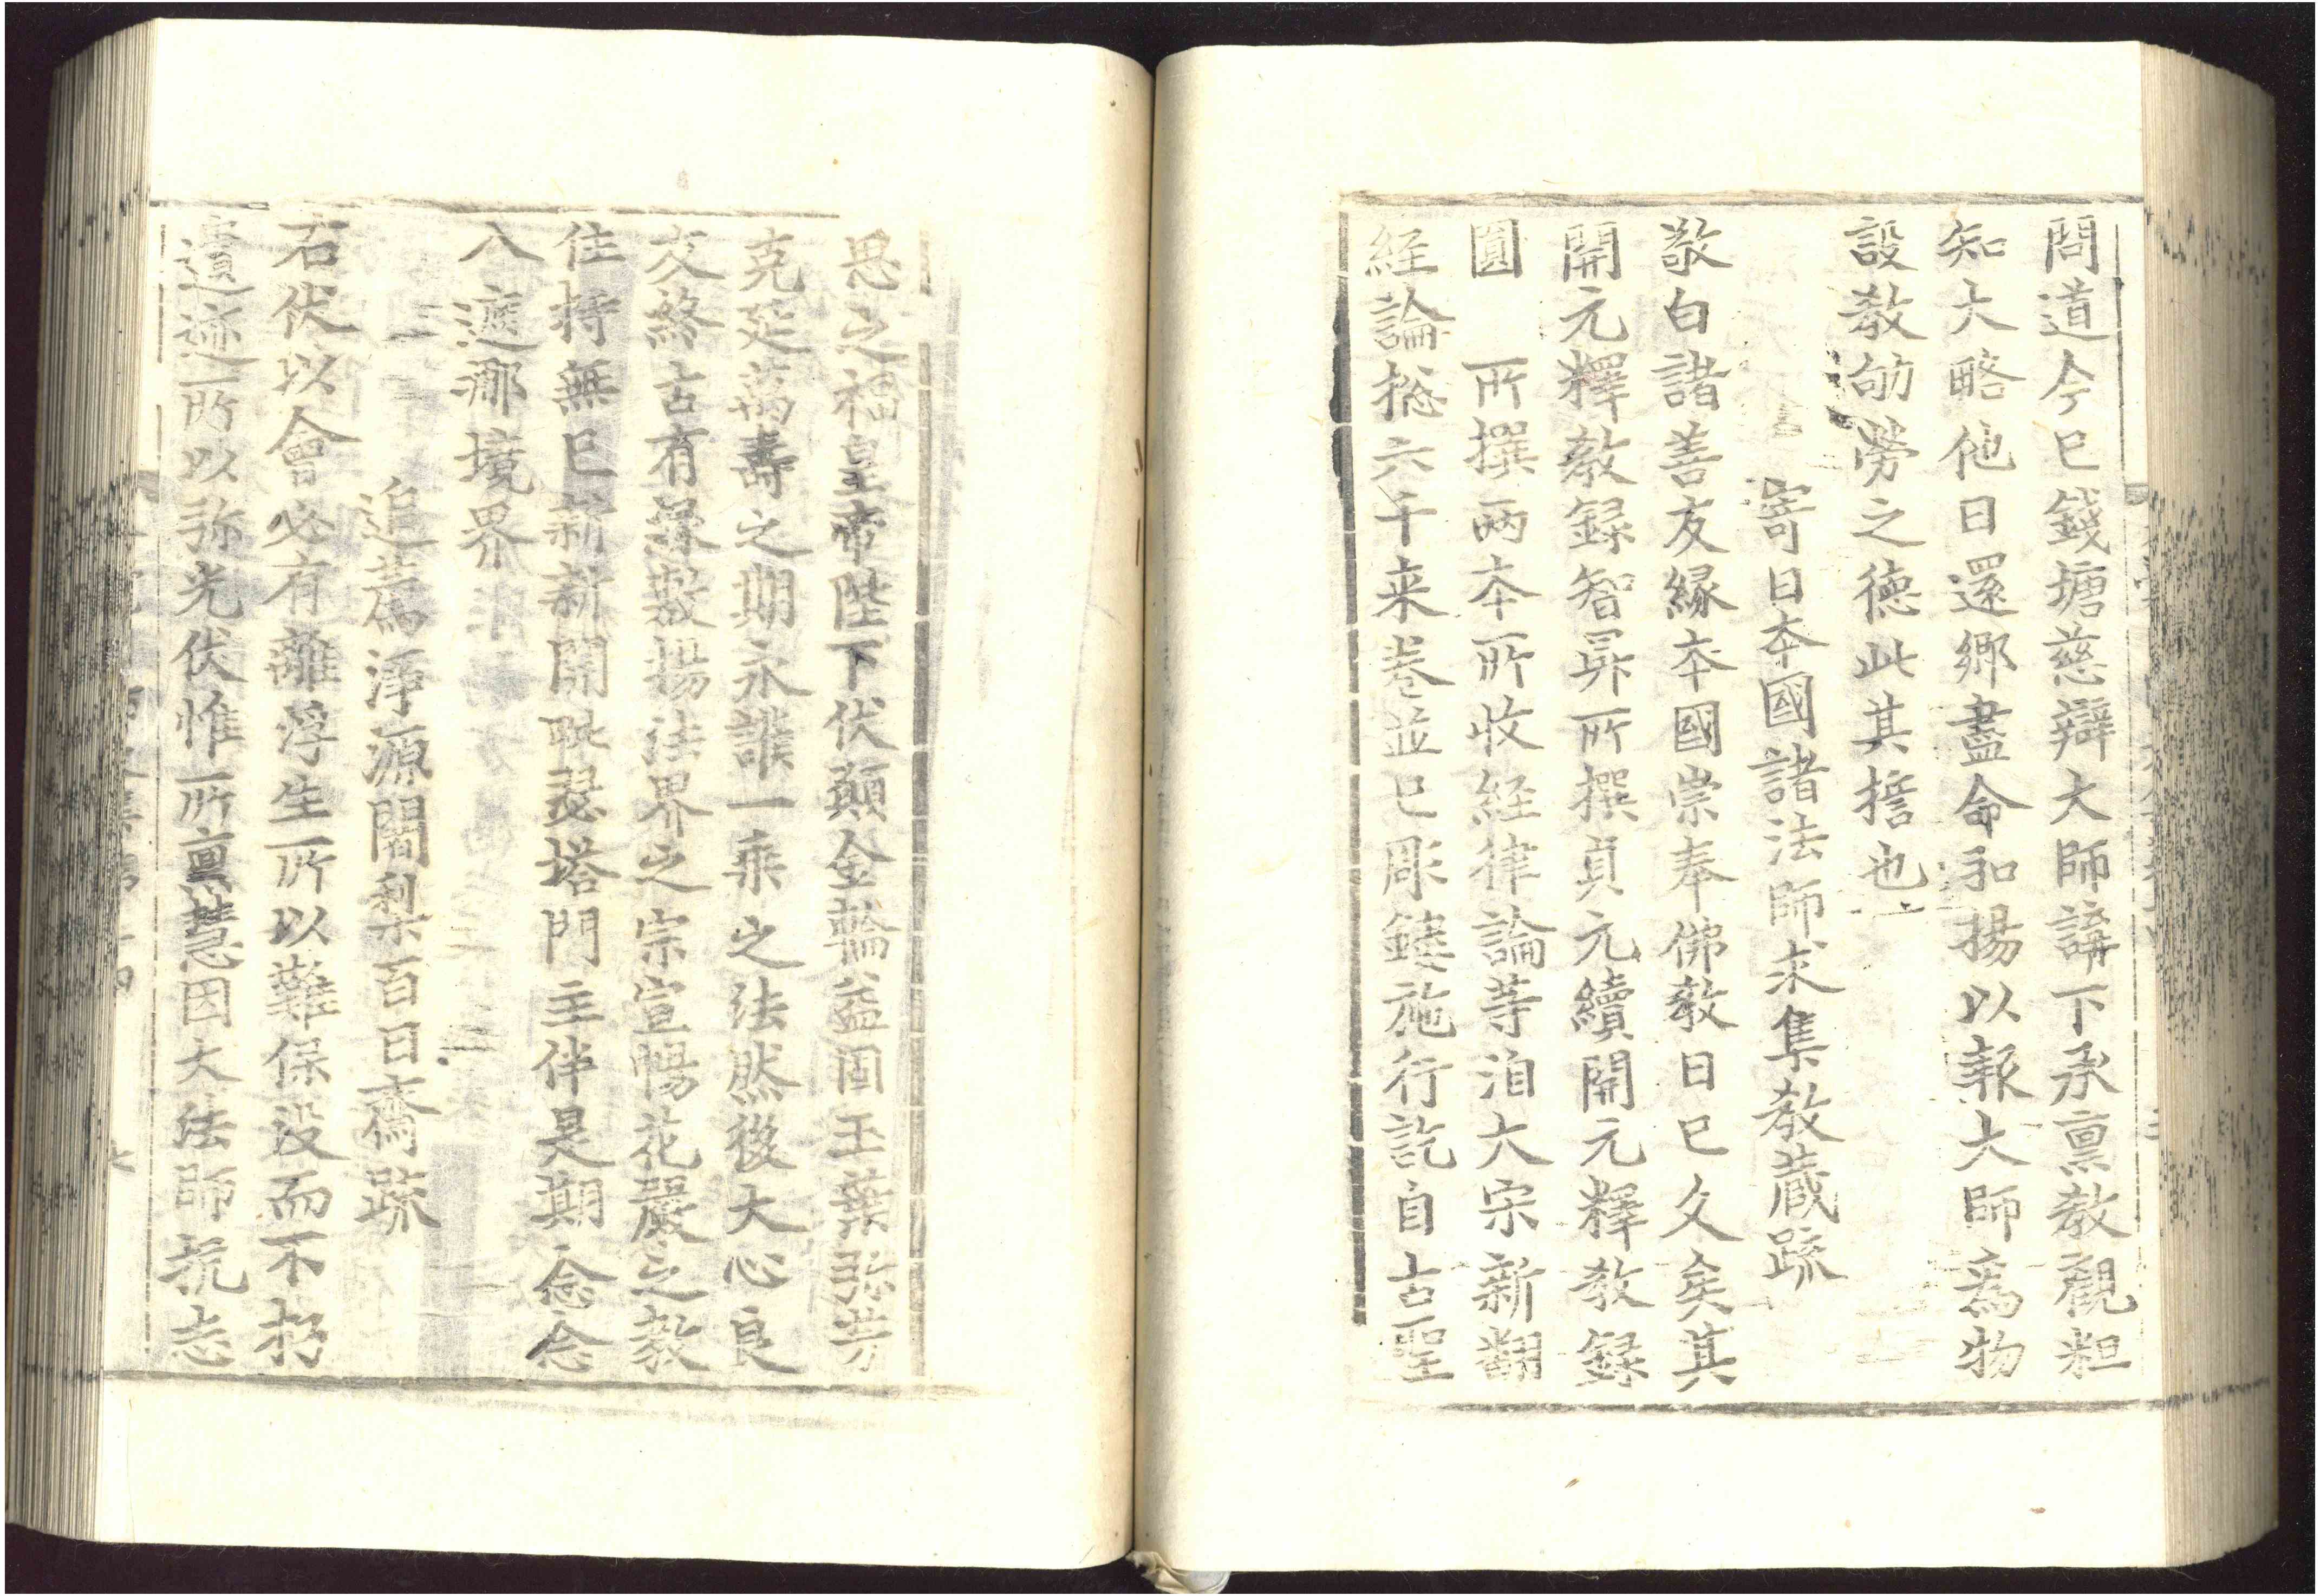 問道今已錢塘慈辯大師講下承禀敎觀粗
知大略他日還鄉盡命和揚以報大師爲物
設敎劬勞之德此其擔也
寄日本國諸法師求集敎藏疏
敬白諸善友緣本國崇奉佛敎日已久矣其
開元釋敎錄智昇所撰貞元續開元釋敎錄
圓 所撰兩本所收經律論等洎大宋新翻
經論摠六千来卷並已彫鏤施行訖自古聖
恩之福皇帝陛下伏願金輪益固玉葉弥芳
克延萬壽之期永護一乘之法然後大心良
友終古有緣敷揚法界之宗宣暢花嚴之敎
住持無已新新開映瑟塔門主伴是期念念
入遮那境界
追薦淨源闍梨百日齋疏
右伏以會必有離浮生所以難保沒而不朽
遺迹所以弥光伏惟所禀慧因大法師抗志